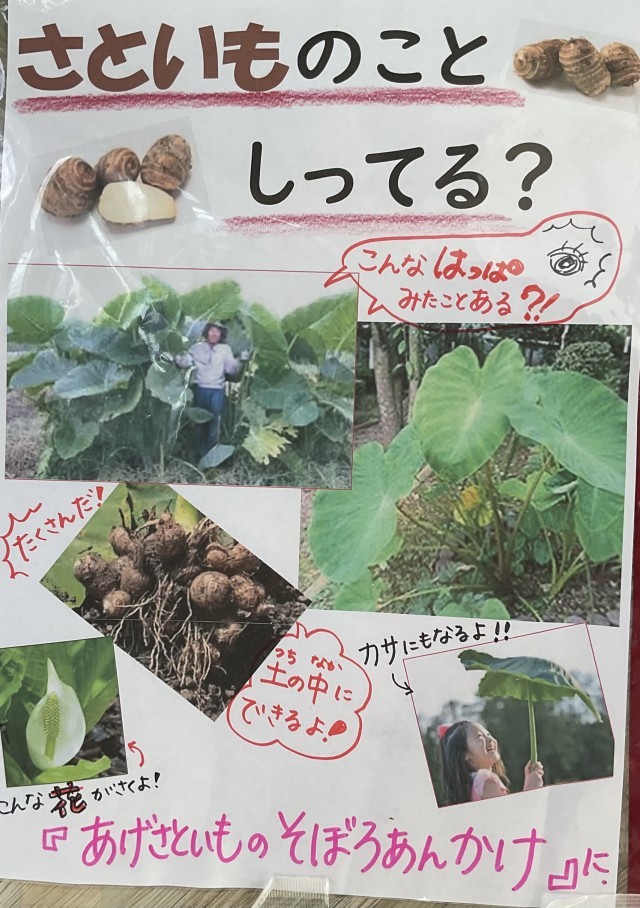 さといものこと
しってる？
こんなはっぱ
みたことある?!
たくさんだ!
つち なか
土の中に
できるよ!
カサにもなるよ!!
こんな花がさくよ!
『あげさといものそぼろあんかけ』に